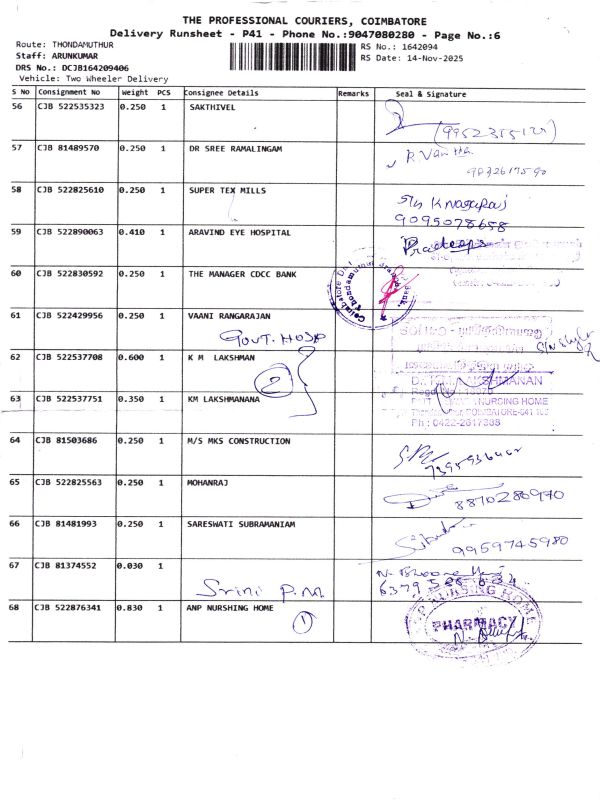 THE PROFESSIONAL COURIERS, COIMBATORE
Delivery Runsheet - P41 - Phone No.:9047080280 - Page No.:6
Route: THONDAMUTHUR
RS No.: 1642094
Staff: ARUNKUMAR
RS Date: 14-Nov-2025
DRS No.: DCJB164209406
Vehicle: Two Wheeler Delivery
S No Consignment No Weight PCS Consignee Details Remarks Seal & Signature
56 CJB 522535323 0.250 1 SAKTHIVEL
57 CJB 81489570 0.250 1 DR SREE RAMALINGAM
58 CJB 522825610 0.250 1 SUPER TEX MILLS
9095078658
59 CJB 522890063 0.410 1 ARAVIND EYE HOSPITAL
Pradeepa
60 CJB 522830592 0.250 1 THE MANAGER CDCC BANK
61 CJB 522429956 0.250 1 VAANI RANGARAJAN
GOVT. HOSP
62 CJB 522537708 0.600 1 K M LAKSHMAN
2
63 CJB 522537751 0.350 1 KM LAKSHMANANA
NURSING HOME
Ph : 0422-2617388
64 CJB 81503686 0.250 1 M/S MKS CONSTRUCTION
65 CJB 522825563 0.250 1 MOHANRAJ
8870286970
66 CJB 81481993 0.250 1 SARESWATI SUBRAMANIAM
9959745980
67 CJB 81374552 0.030 1
Srini P.M
68 CJB 522876341 0.830 1 ANP NURSHING HOME
1
NURSING HOME
PHARMACY